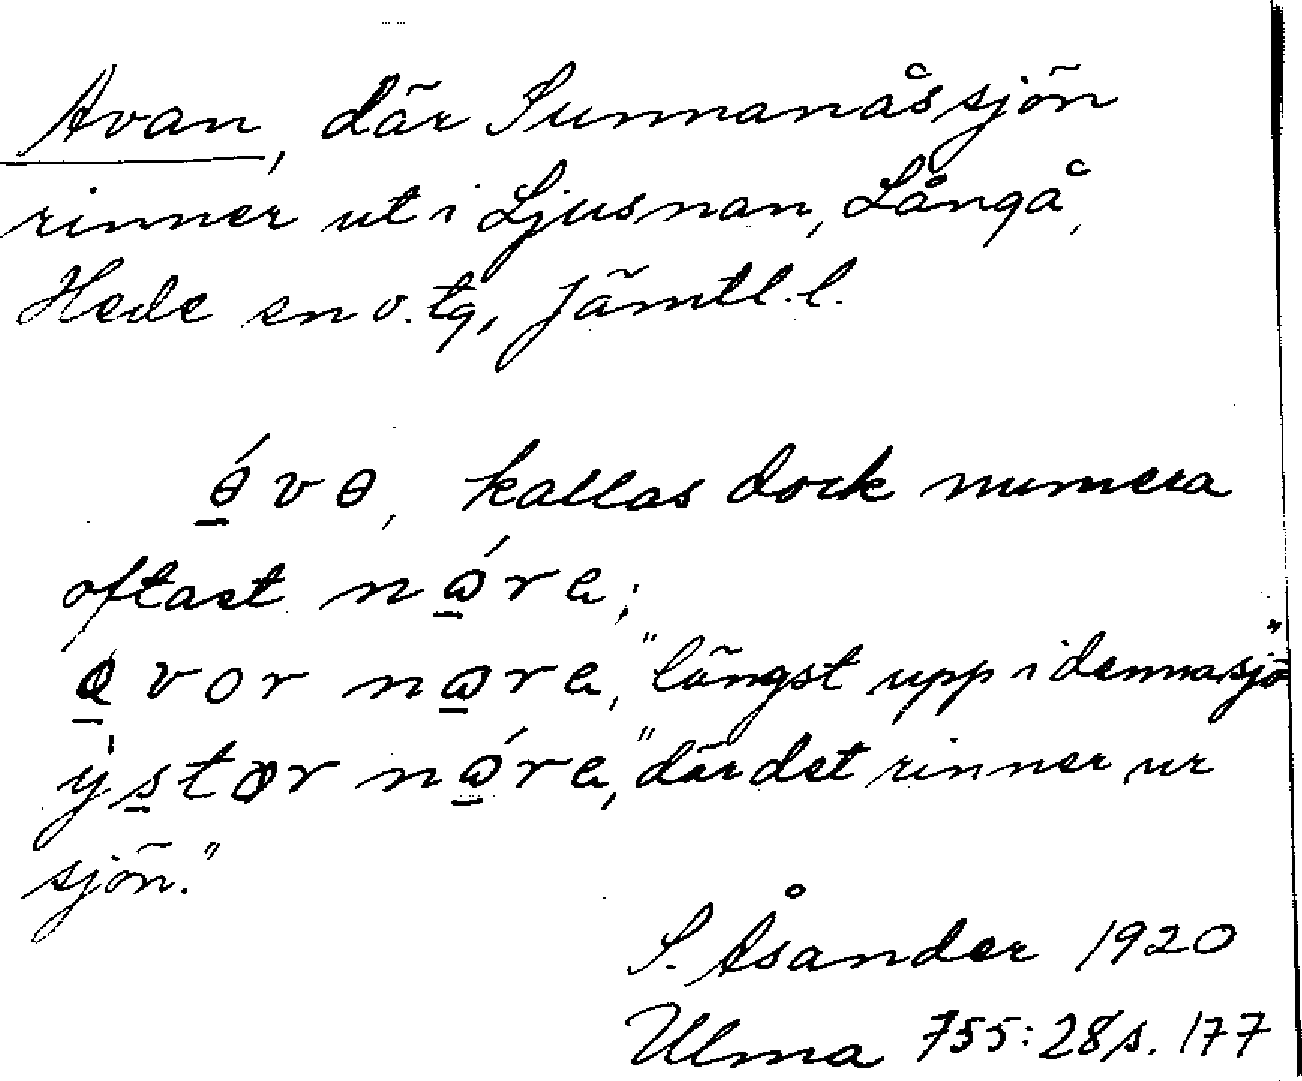 Avan, där Sunnanåssjön
rinner ut i Ljusnan, Långå,
Hede sn o. tg, Jämtl. l.
ɵ́vɵ, kallas dock numera
oftast nǿra;
vor nøra, "längst upp i denna sjö"
ystør nǿra, "där det rinner ur
sjön."
S. Åsander 1920
Ulma 755:28 s. 177